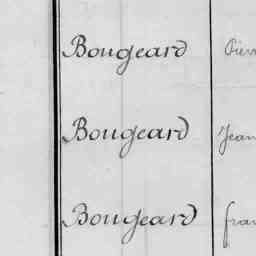 Bougeard Pierr
Bougeard Jean
Bougeard fran